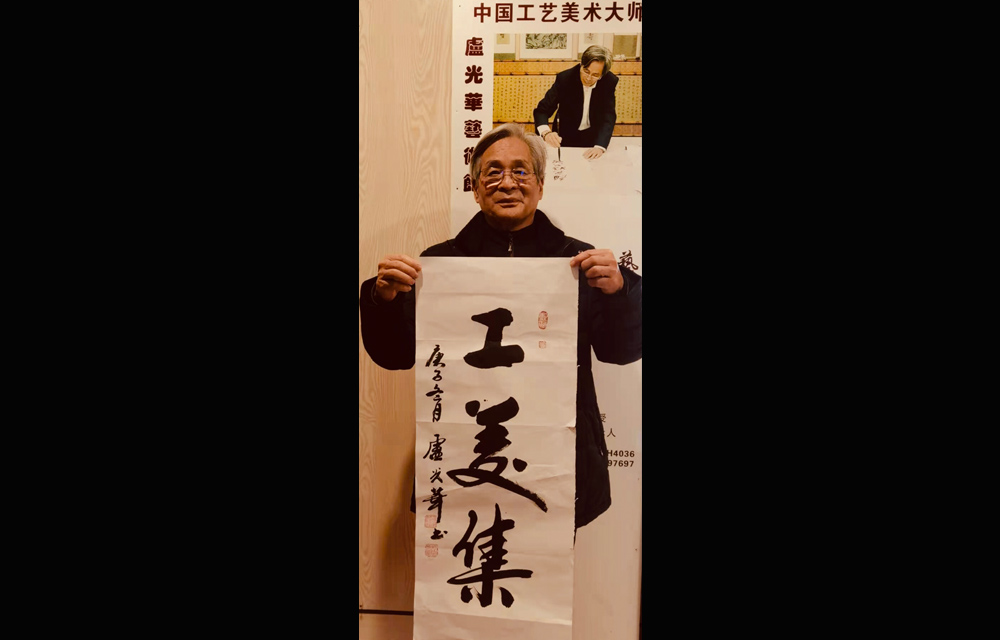 中国工艺美术大师
盧光華藝術館
藝
受
人
H4036
97697
工美集
庚子冬月 盧光華書